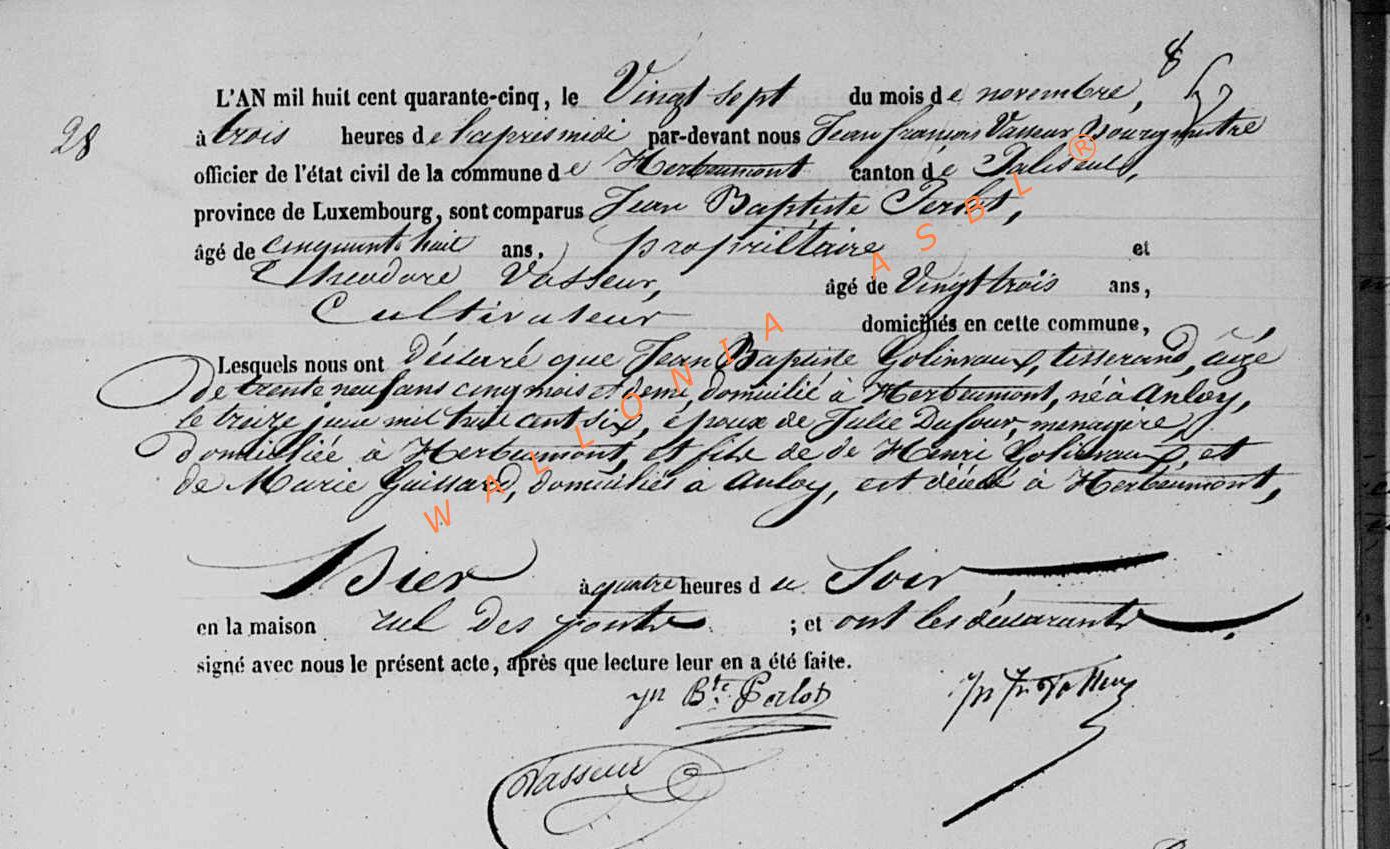 8
28
L'AN mil huit cent quarante-cinq, le Vingt sept du mois de novembre,
à trois heures de l'apresmidi par-devant nous Jean françois Vasseur Bourgmestre
officier de l'état civil de la commune de Herbeumont canton de Paliseul,
province de Luxembourg, sont comparus Jean Baptiste Perlot,
âgé de cinquante huit ans, propriétaire et
Theodore Vasseur, âgé de Vingt trois ans,
Cultivateur domiciliés en cette commune,
Lesquels nous ont déclaré que Jean Baptiste Golinvaux, tisserand, âgé
de trente neuf ans cinq mois et demi, domicilié à Herbeumont, né à Anloy,
le treize juin mil huit cent six, époux de Julie Dufour, menagère,
domiciliée à Herbeumont, et fils de de Henri Golinvaux, et
de Marie Guissard, domiciliés à Anloy, est décédé à Herbeumont,
Hier à quatre heures du Soir
en la maison rue des ponts ; et ont les déclarants
signé avec nous le présent acte, après que lecture leur en a été faite.
Jn Bte Perlot
Vasseur
WALLONIA ASBL ®